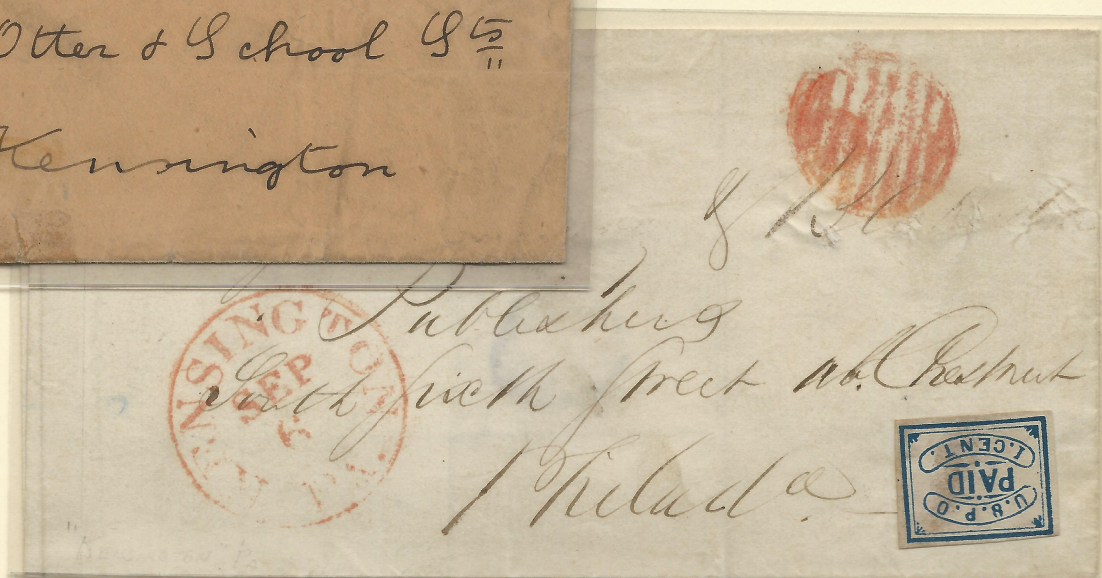 Otter & School Sts
Kensington
&
Publishers
South Sixth Street ab. Chestnut
Philada
KENSINGTON Pa.
SEP
6
U.S.P.O
PAID
1.CENT.